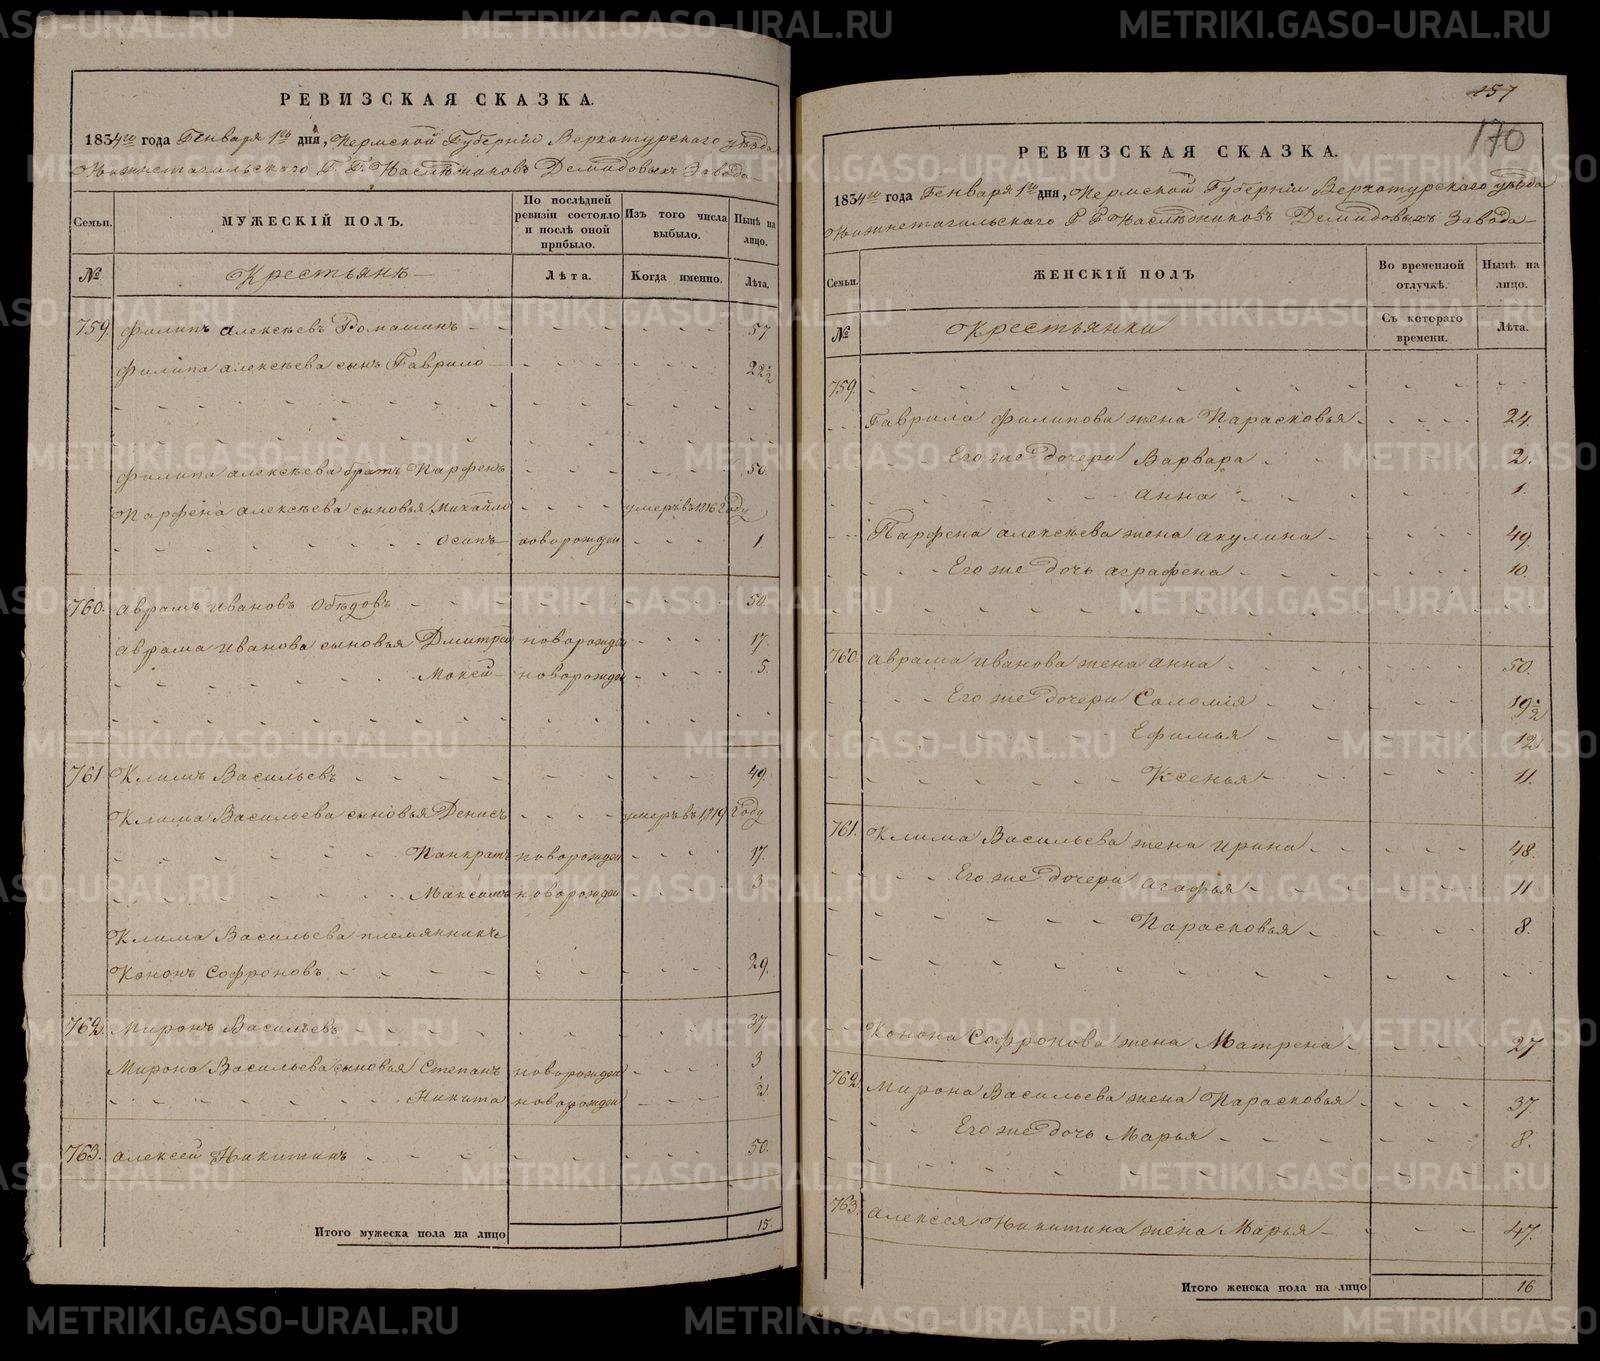 РЕВИЗСКАЯ СКАЗКА.
1834го года Генваря 1го дня, Пермской Губерніи Верхотурскаго уѣзда
Нижнетагильскаго Г. Г. Наслѣдниковъ Демидовыхъ Завода
Семьи.
МУЖЕСКІЙ ПОЛЪ.
По послѣдней ревизіи состояло и послѣ оной прибыло.
Изъ того числа выбыло.
Нынѣ на лицо.
№
Крестьяне
Лѣта.
Когда именно.
Лѣта.
759. Филипъ Алексѣевъ Ромашинъ 57
Филипа Алексѣева сынъ Гаврило 22½
Филипа Алексѣева братъ Парфенъ 50.
Парфена Алексѣева сыновья Михайло умеръ въ 1816 Году
Осипъ новорожден 1
760. Аврамъ Ивановъ Обѣдовъ 50.
Аврама Иванова сыновья Дмитрей новорожден 17.
Мокей новорожден 5.
761 Климъ Васильевъ 49.
Клима Васильева сыновья Денисъ умеръ въ 1819 Году
Панкратъ новорожден 17.
Максимъ новорожден 3
Клима Васильева племянникъ
Кононъ Софроновъ 29.
762. Миронъ Васильевъ 37
Мирона Васильева сыновья Степанъ новорожден 3
Никита новорожден ½
763. Алексей Никитинъ 50.
Итого мужеска пола на лицо 15.
157
170
РЕВИЗСКАЯ СКАЗКА.
1834го года Генваря 1го дня, Пермской Губерніи Верхотурскаго уѣзда
Нижнетагильскаго Г. Г. Наслѣдниковъ Демидовыхъ Завода
Семьи.
ЖЕНСКІЙ ПОЛЪ
Во временной отлучкѣ.
Нынѣ на лицо.
№
Крестьянки
Съ котораго времени.
Лѣта.
759.
Гаврила Филипова жена Парасковья 24.
Его же дочери Варвара 2.
Анна 1.
Парфена Алексѣева жена Акулина 49.
Его же дочь Аграфена 10.
760. Аврама Иванова жена Анна 50.
Его же дочери Саломія 19½
Ефимья 12
Ксенья 11.
761. Клима Васильева жена Ирина 48.
Его же дочери Агафья 11
Парасковья 8.
Конона Софронова жена Матрена 27
762 Мирона Васильева жена Парасковья 37
Его же дочь Марья 8.
763. Алексея Никитина жена Марья 47.
Итого женска пола на лицо 16
METRIKI.GASO-URAL.RU